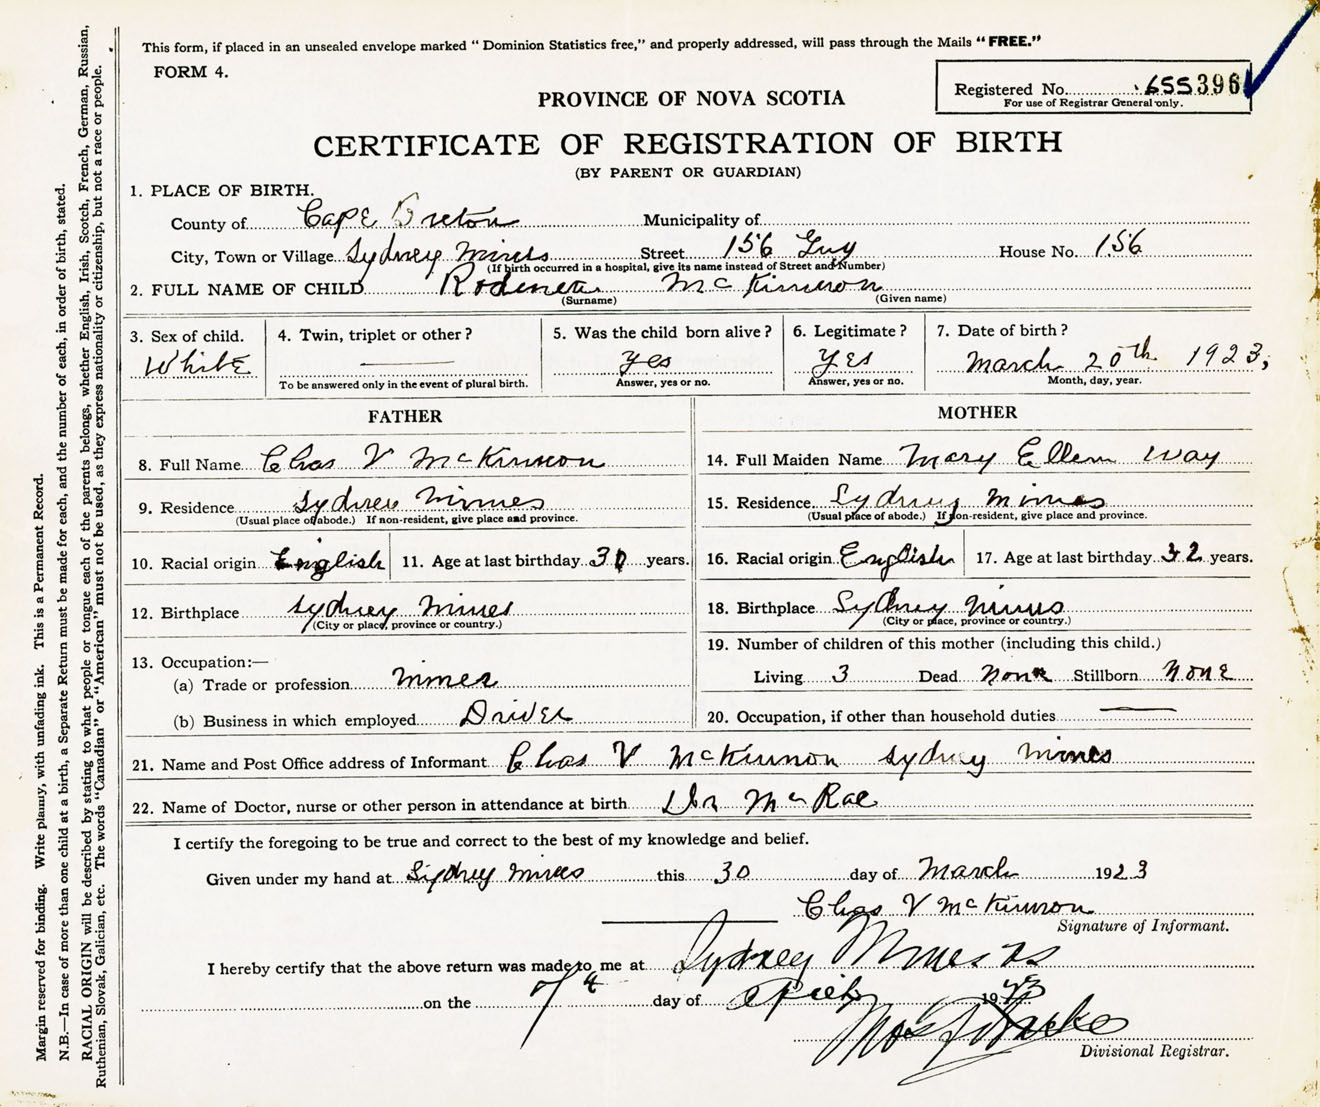 This form, if placed in an unsealed envelope marked "Dominion Statistics free," and properly addressed, will pass through the Mails "FREE."
FORM 4.
Registered No. 655396
For use of Registrar General only.
PROVINCE OF NOVA SCOTIA
CERTIFICATE OF REGISTRATION OF BIRTH
(BY PARENT OR GUARDIAN)
1. PLACE OF BIRTH.
County of Cape Breton Municipality of
City, Town or Village Sydney Mines Street 156 Guy House No. 156
(If birth occurred in a hospital, give its name instead of Street and Number)
2. FULL NAME OF CHILD McKinnon
(Surname) (Given name)
3. Sex of child. 4. Twin, triplet or other? 5. Was the child born alive? 6. Legitimate? 7. Date of birth?
White — yes YES March 20th 1923,
To be answered only in the event of plural birth. Answer, yes or no. Answer, yes or no. Month, day, year.
FATHER
8. Full Name Chas V McKinnon
9. Residence Sydney Mines
(Usual place of abode.) If non-resident, give place and province.
10. Racial origin English 11. Age at last birthday 30 years.
12. Birthplace Sydney Mines
(City or place, province or country.)
13. Occupation:—
(a) Trade or profession Miner
(b) Business in which employed Driver
MOTHER
14. Full Maiden Name Mary Ellen Way
15. Residence Sydney Mines
(Usual place of abode.) If non-resident, give place and province.
16. Racial origin English 17. Age at last birthday 32 years.
18. Birthplace Sydney Mines
(City or place, province or country.)
19. Number of children of this mother (including this child.)
Living 3 Dead None Stillborn NONE
20. Occupation, if other than household duties —
21. Name and Post Office address of Informant Chas V McKinnon Sydney Mines
22. Name of Doctor, nurse or other person in attendance at birth Dr McRae
I certify the foregoing to be true and correct to the best of my knowledge and belief.
Given under my hand at Sydney Mines this 30 day of March 1923
Chas V McKinnon
Signature of Informant.
I hereby certify that the above return was made to me at Sydney Mines NS
on the 7th day of April 1923
Divisional Registrar.
Margin reserved for binding. Write plainly, with unfading ink. This is a Permanent Record.
N.B.—In case of more than one child at a birth, a Separate Return must be made for each, and the number of each, in order of birth, stated.
RACIAL ORIGIN will be described by stating to what people or tongue each of the parents belongs, whether English, Irish, Scotch, French, German, Russian,
Ruthenian, Slovak, Galician, etc. The words "Canadian" or "American" must not be used, as they express nationality or citizenship, but not a race or people.